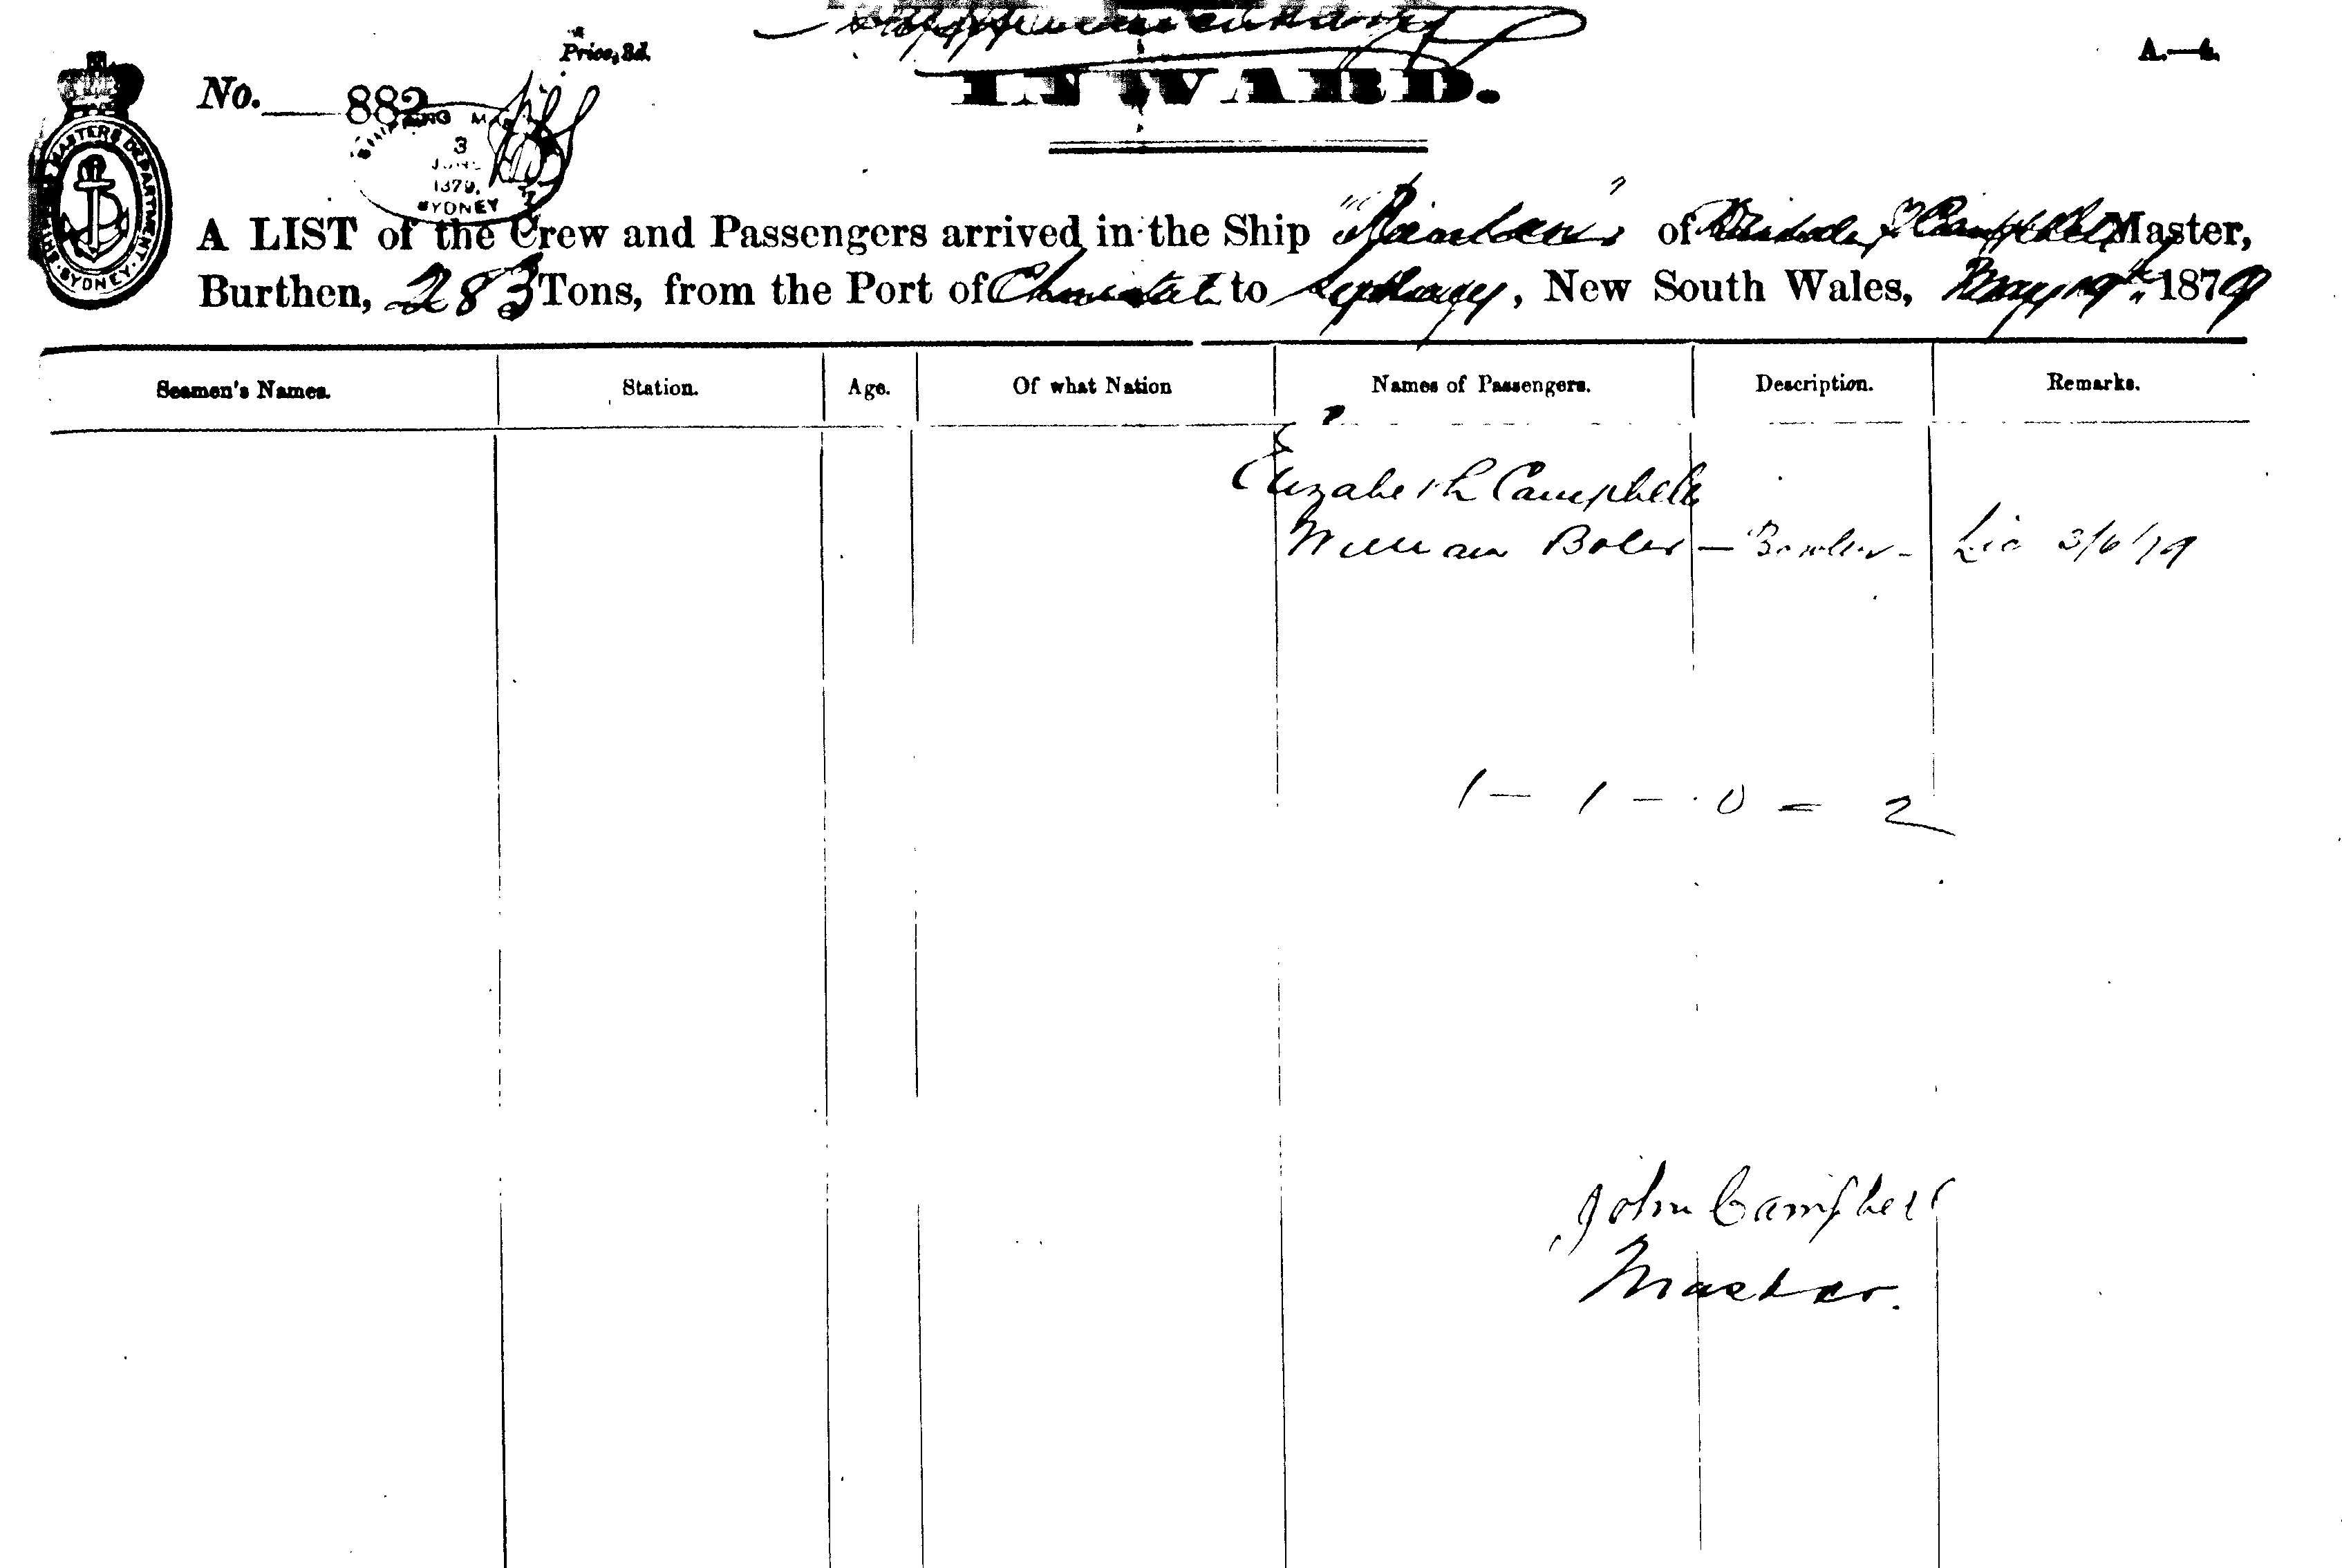 Supplementary
Price, 3d.
A.—4.
No. 882
INWARD.
SHIPPING MASTERS DEPARTMENT · SYDNEY ·
SHIPPING MAS
3
JUNE
1879.
SYDNEY
A LIST of the Crew and Passengers arrived in the Ship of Campbell Master,
Burthen, 283 Tons, from the Port of to Sydney, New South Wales, May 19th 1879
Seamen's Names. Station. Age. Of what Nation Names of Passengers. Description. Remarks.
Elizabeth Campbell
William — — 3/6/79
1 — 1 — 0 = 2
John Campbell
Master.